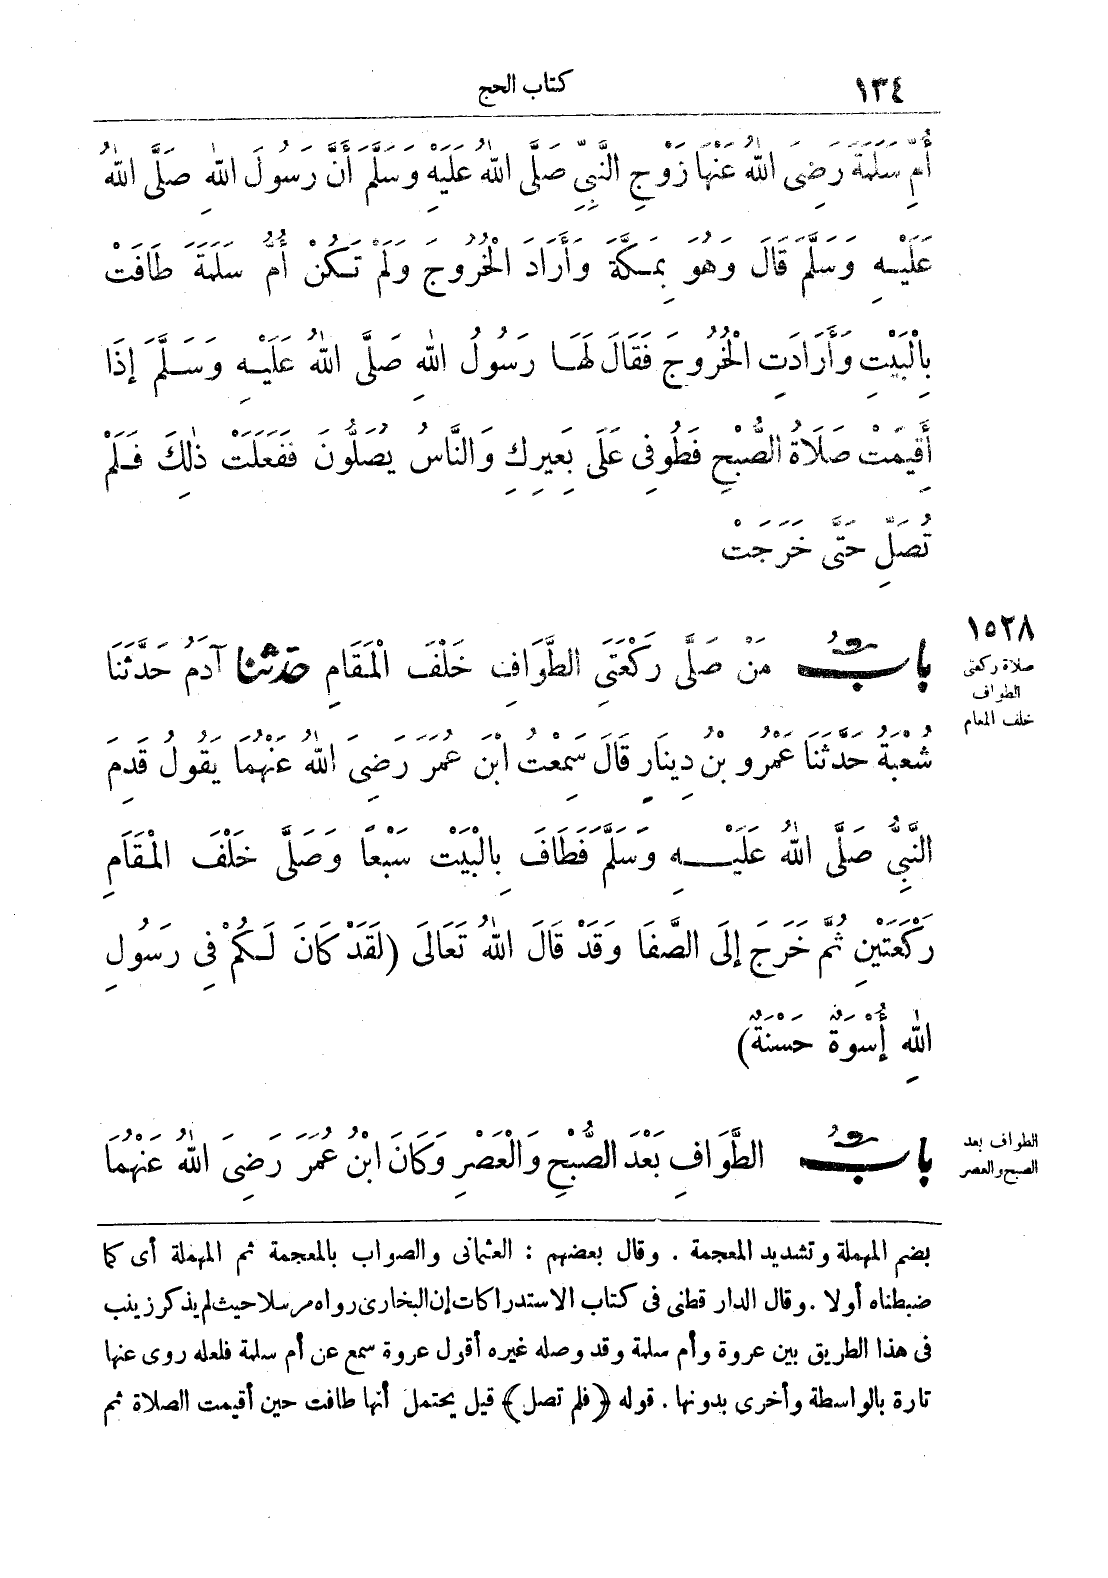 ١٣٤ كتاب الحج
أُمِّ سَلَمَةَ رَضِيَ اللهُ عَنْهَا زَوْجِ النَّبِيِّ صَلَّى اللهُ عَلَيْهِ وَسَلَّمَ أَنَّ رَسُولَ اللهِ صَلَّى اللهُ
عَلَيْهِ وَسَلَّمَ قَالَ وَهُوَ بِمَكَّةَ وَأَرَادَ الْخُرُوجَ وَلَمْ تَكُنْ أُمُّ سَلَمَةَ طَافَتْ
بِالْبَيْتِ وَأَرَادَتِ الْخُرُوجَ فَقَالَ لَهَا رَسُولُ اللهِ صَلَّى اللهُ عَلَيْهِ وَسَلَّمَ إِذَا
أُقِيمَتْ صَلَاةُ الصُّبْحِ فَطُوفِى عَلَى بَعِيرِكِ وَالنَّاسُ يُصَلُّونَ فَفَعَلَتْ ذٰلِكَ فَلَمْ
تُصَلِّ حَتَّى خَرَجَتْ
١٥٢٨
صلاة ركعتى
الطواف
خلف المقام
بابٌ مَنْ صَلَّى رَكْعَتَىِ الطَّوَافِ خَلْفَ الْمَقَامِ حَدَّثَنَا آدَمُ حَدَّثَنَا
شُعْبَةُ حَدَّثَنَا عَمْرُو بْنُ دِينَارٍ قَالَ سَمِعْتُ ابْنَ عُمَرَ رَضِىَ اللهُ عَنْهُمَا يَقُولُ قَدِمَ
النَّبِىُّ صَلَّى اللهُ عَلَيْهِ وَسَلَّمَ فَطَافَ بِالْبَيْتِ سَبْعًا وَصَلَّى خَلْفَ الْمَقَامِ
رَكْعَتَيْنِ ثُمَّ خَرَجَ إِلَى الصَّفَا وَقَدْ قَالَ اللهُ تَعَالَى (لَقَدْ كَانَ لَكُمْ فِى رَسُولِ
اللهِ أُسْوَةٌ حَسَنَةٌ)
الطواف بعد
الصبح والعصر
بابٌ الطَّوَافِ بَعْدَ الصُّبْحِ وَالْعَصْرِ وَكَانَ ابْنُ عُمَرَ رَضِىَ اللهُ عَنْهُمَا
بضم المهملة وتشديد المعجمة . وقال بعضهم : العثمانى والصواب بالمعجمة ثم المهملة أى كما
ضبطناه أولا . وقال الدار قطنى فى كتاب الاستدراكات إن البخارى رواه مرسلا حيث لم يذكر زينب
فى هذا الطريق بين عروة وأم سلمة وقد وصله غيره أقول عروة سمع عن أم سلمة فلعله روى عنها
تارة بالواسطة وأخرى بدونها . قوله (فلم تصل) قيل يحتمل أنها طافت حين أقيمت الصلاة ثم